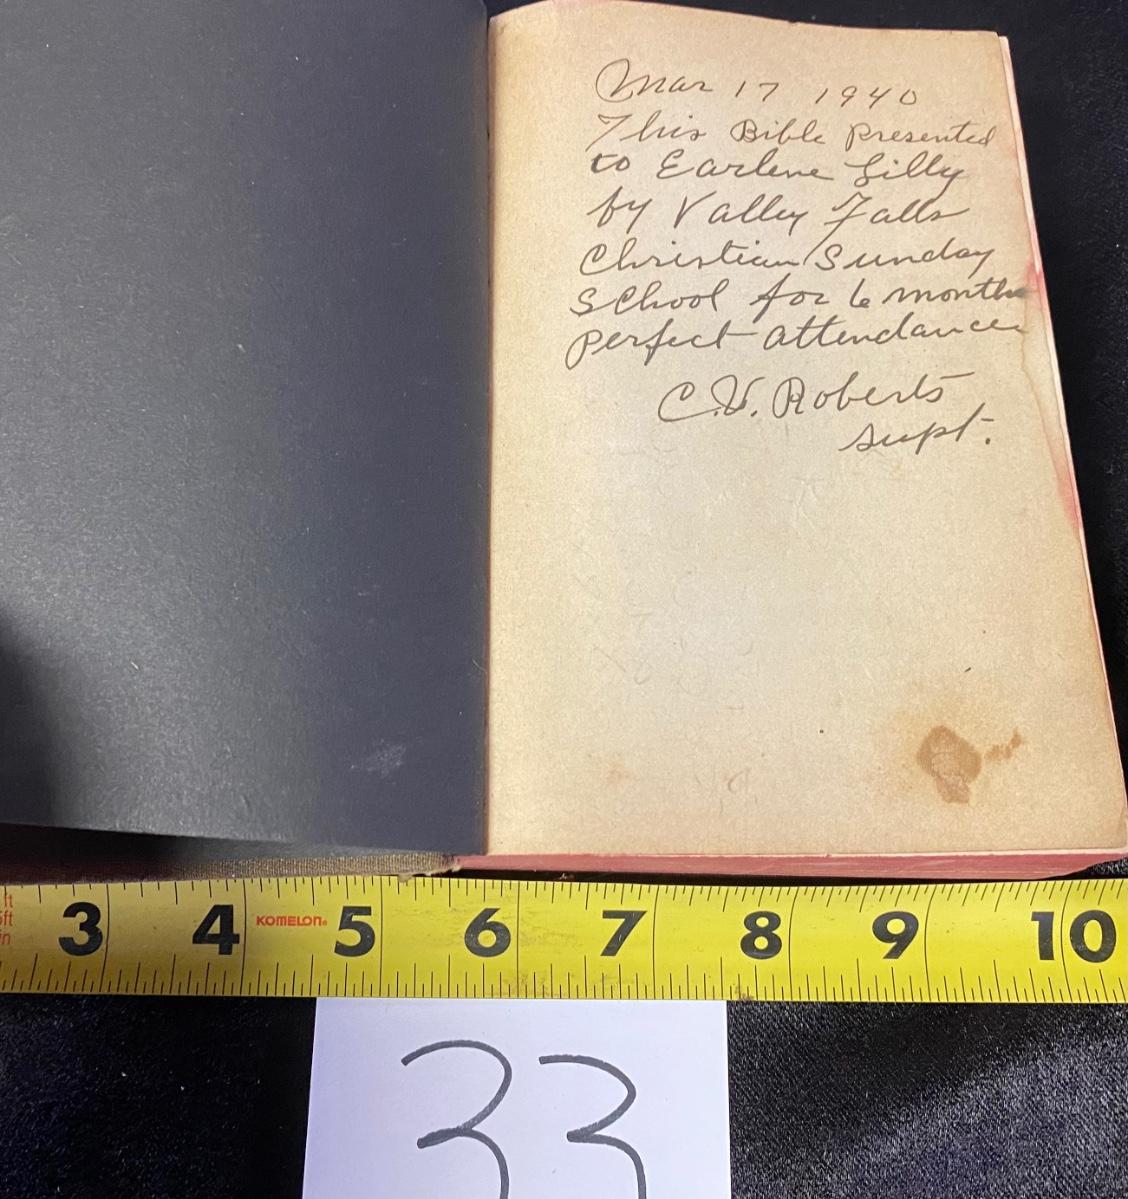 Mar 17 1940
This Bible presented
to Earlene Lilly
by Valley Falls
Christian Sunday
School for 6 months
perfect attendance
C.V. Roberts
supt.
ft
ft
in
3 4 KOMELON 5 6 7 8 9 10
33